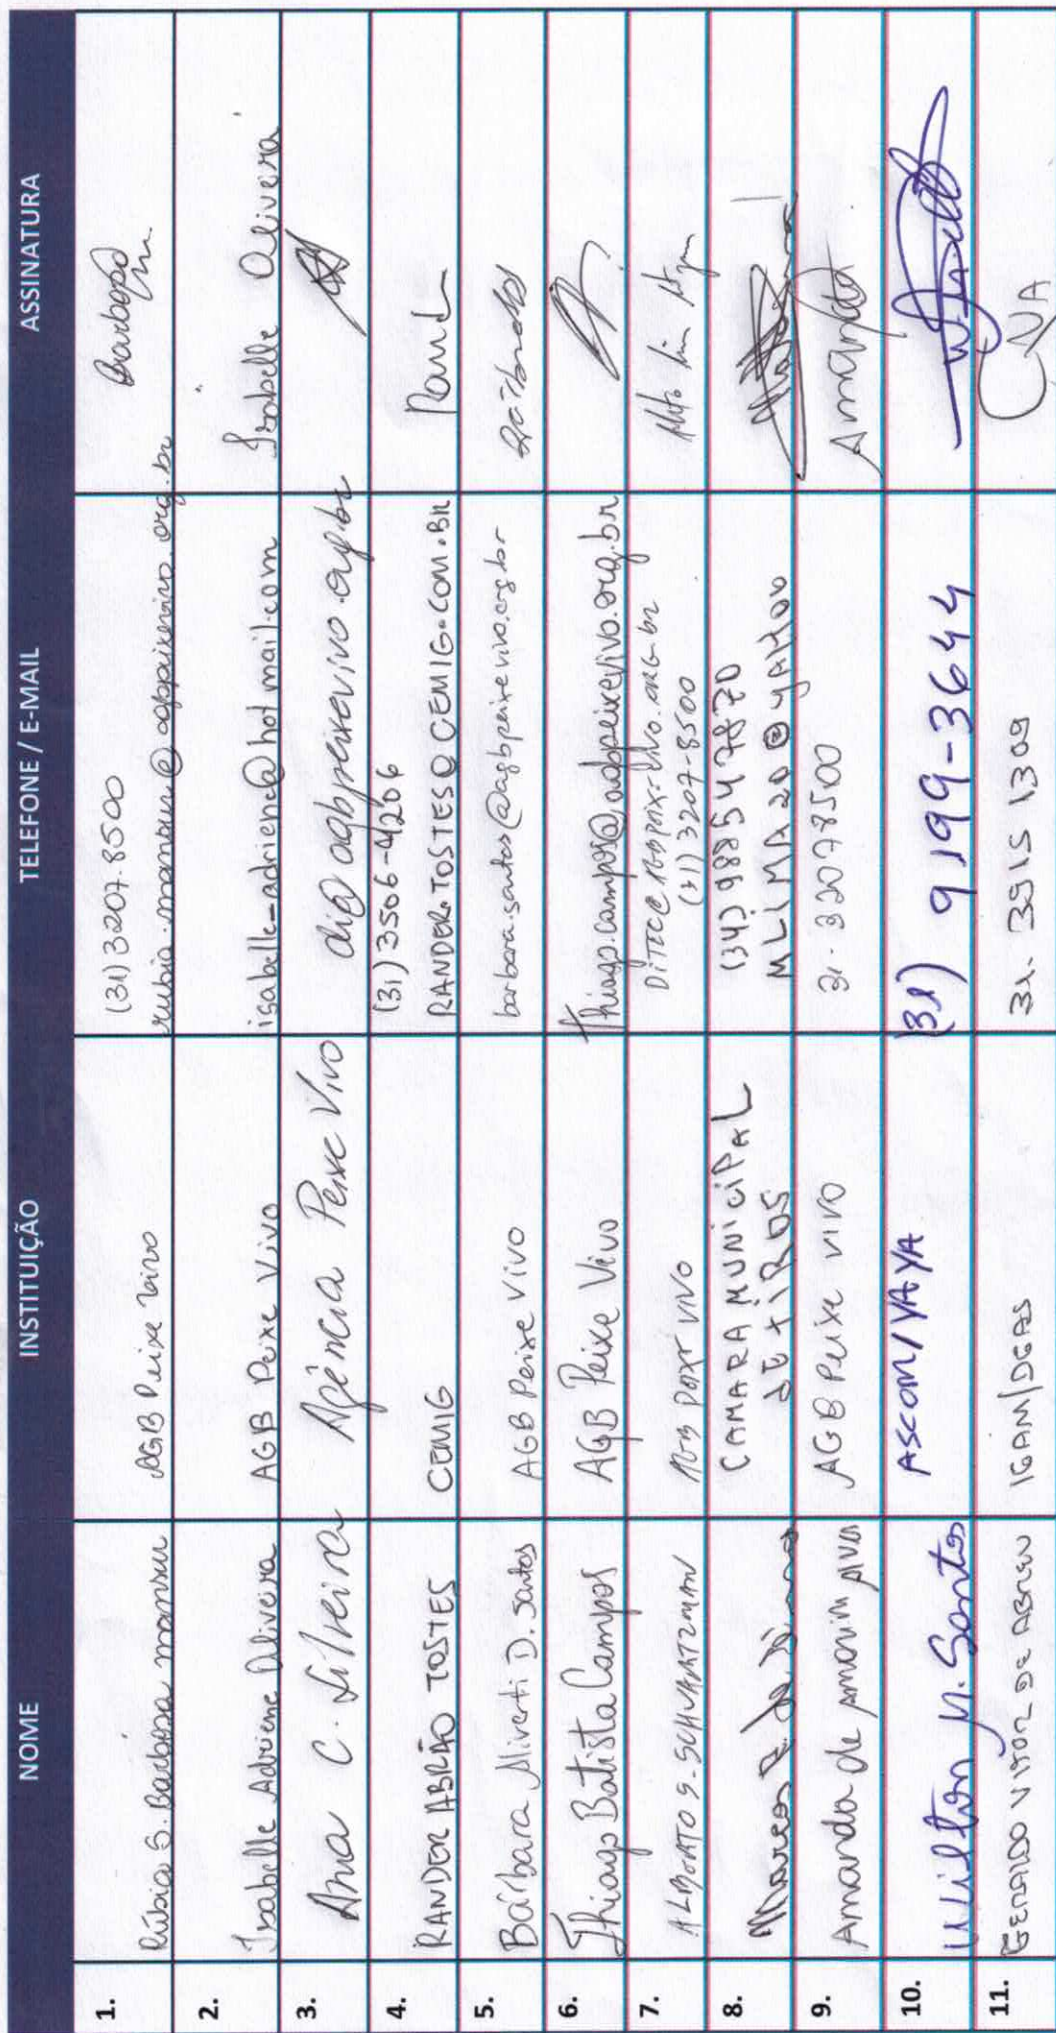 NOME INSTITUIÇÃO TELEFONE / E-MAIL ASSINATURA
1. Rúbia S. Barbosa Mansur AGB Peixe Vivo (31) 3207.8500 Barbosa
rubia.mansur@agbpeixevivo.org.br
2. Isabelle Adriene Oliveira AGB Peixe Vivo isabelle-adriene@hotmail.com Isabelle Oliveira
3. Ana C. Silveira Agência Peixe Vivo agbpeixevivo.org.br
4. RANDER ABRÃO TOSTES CEMIG (31) 3506-4206
RANDER.TOSTES@CEMIG.COM.BR
5. Bárbara D. Santos AGB Peixe Vivo barbara.santos@agbpeixevivo.org.br
6. Thiago Batista Campos AGB Peixe Vivo thiago.campos@agbpeixevivo.org.br
7. ALBERTO S. SCHVARTZMAN AGB PEIXE VIVO
(31) 3207-8500
8. CAMARA MUNICIPAL (34) 988547870
DE TIROS MLIMA20@YAHOO
9. Amanda de Amorim AGB Peixe Vivo 31-32078500 Amanda
10. Wilton M. Santos ASCOM/YAYA (31) 9199-3644
11. GERALDO VITOR DE ABREU IGAM/DGAS 31. 3915 1309